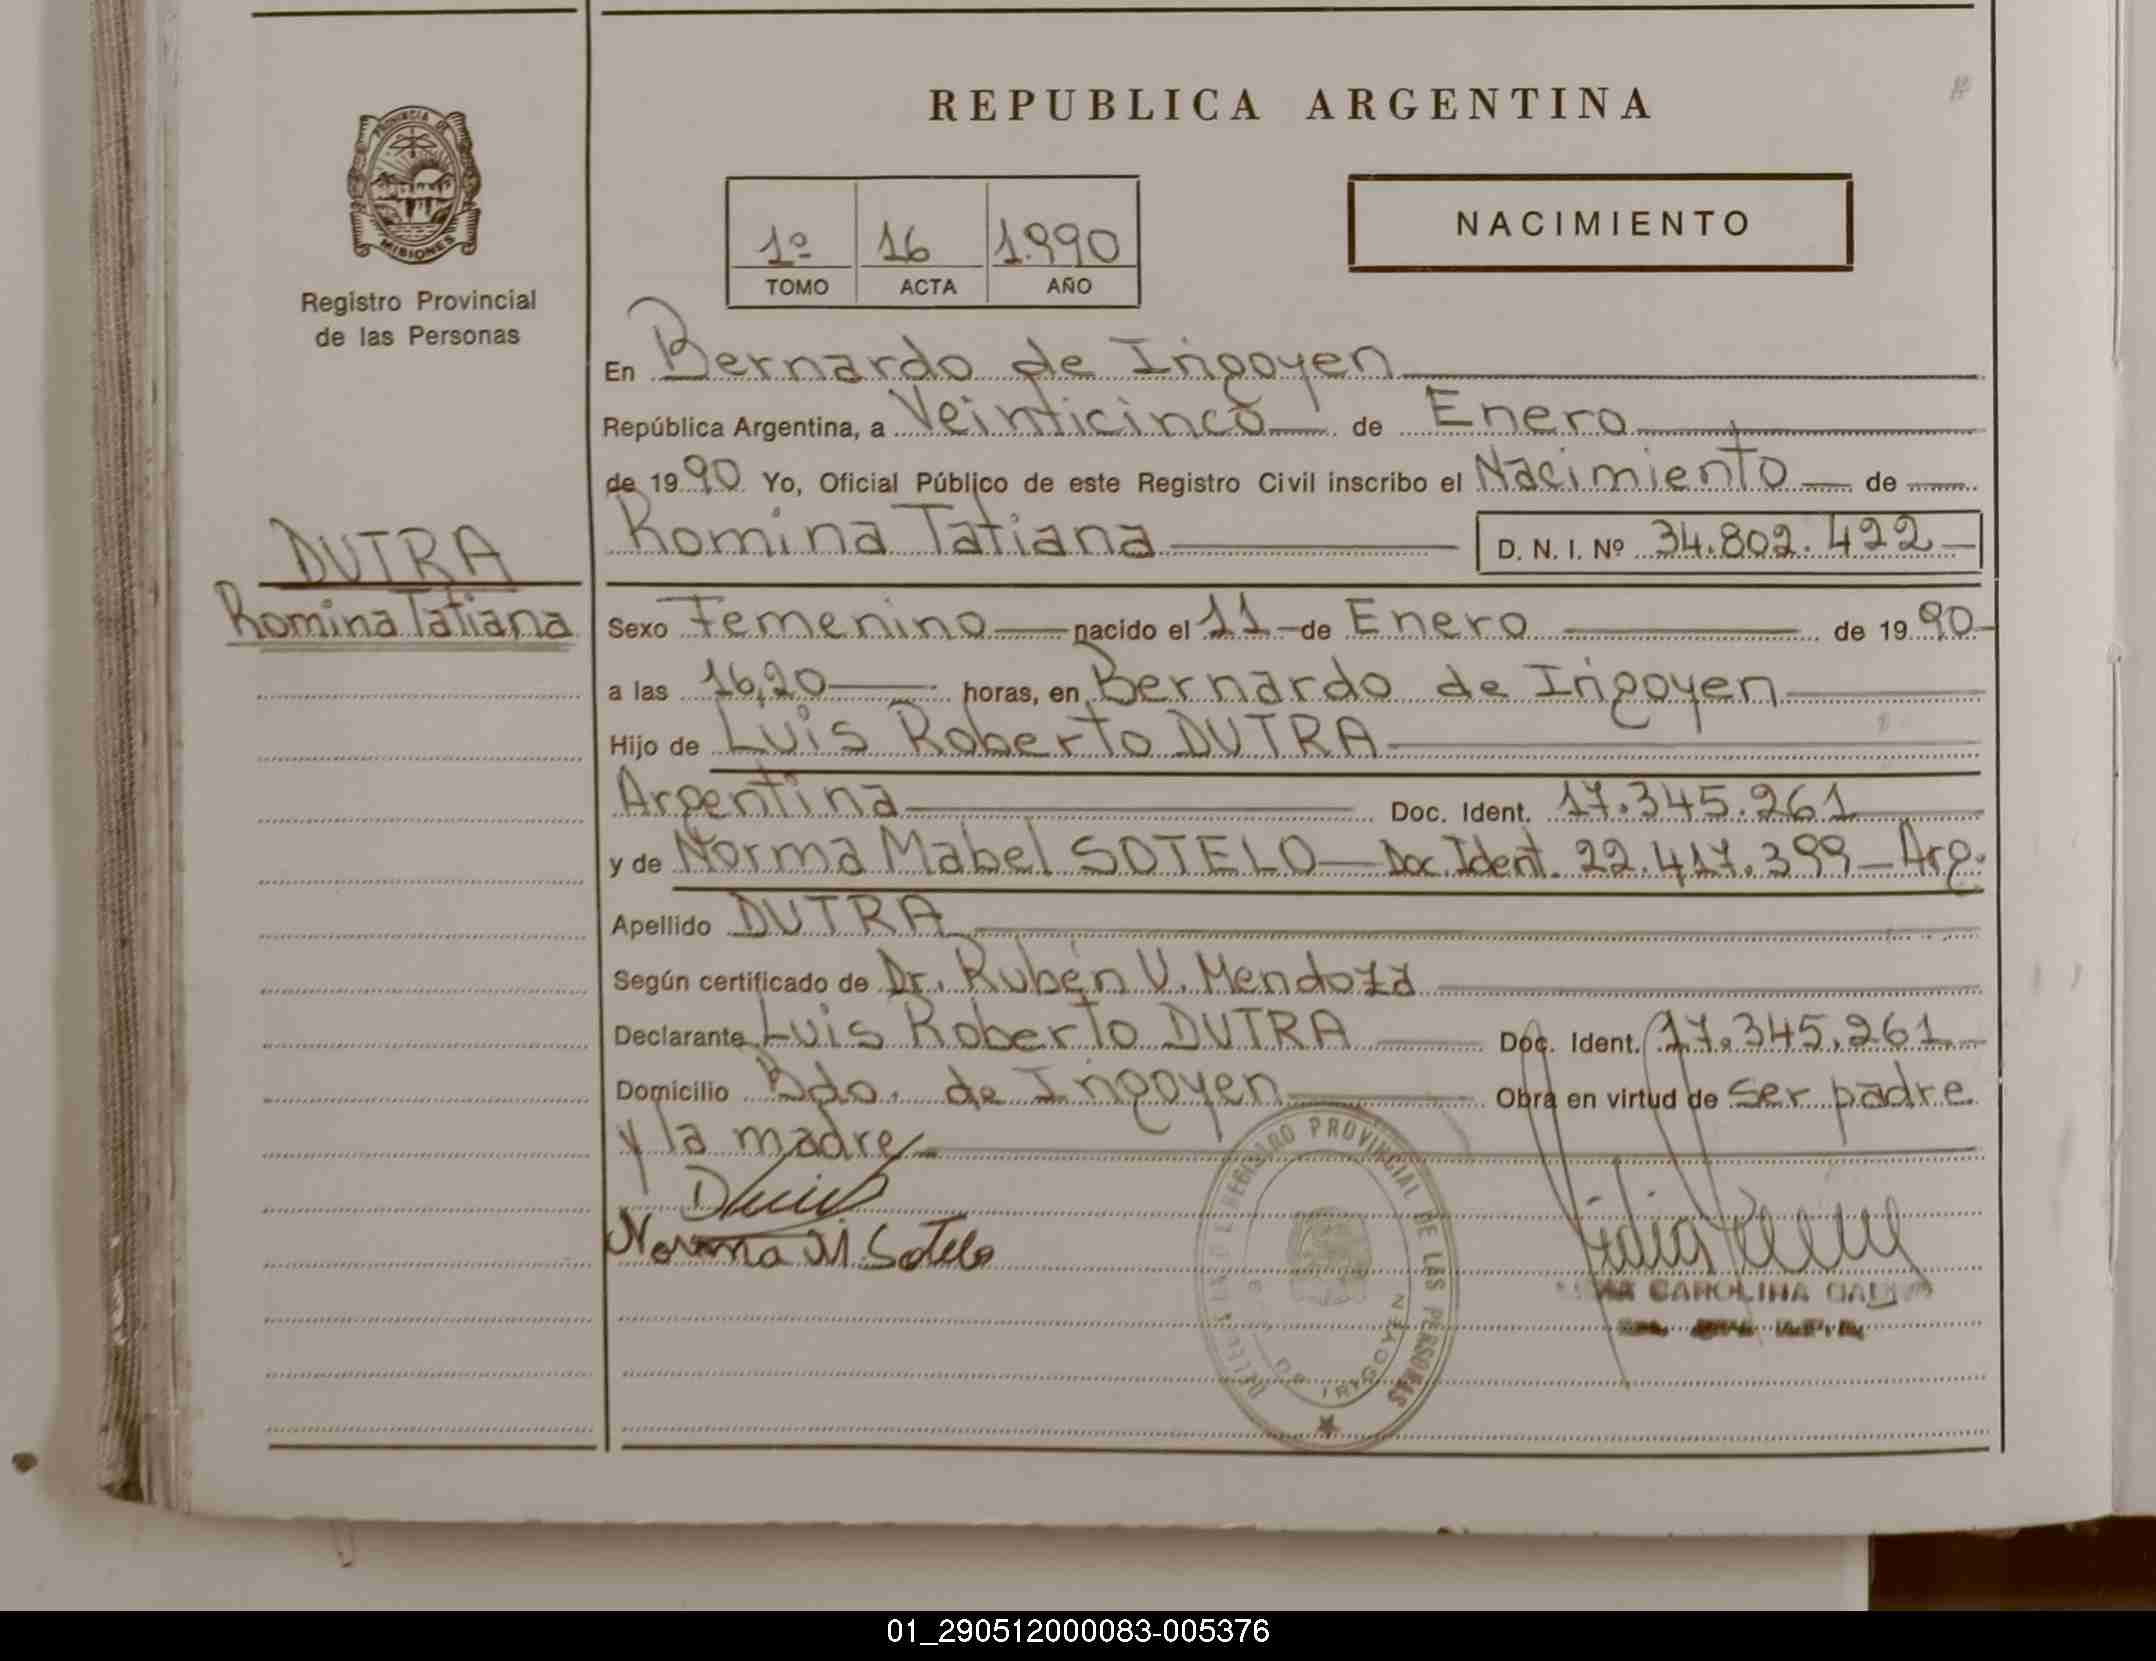 REPUBLICA ARGENTINA
PROVINCIA DE
MISIONES
Registro Provincial
de las Personas
1º 16 1.990
TOMO ACTA AÑO
NACIMIENTO
En Bernardo de Irigoyen
República Argentina, a Veinticinco de Enero
de 1990 Yo, Oficial Público de este Registro Civil inscribo el Nacimiento de
Romina Tatiana D. N. I. Nº 34.802.422
DUTRA
Romina Tatiana
Sexo Femenino nacido el 11 de Enero de 1990
a las 16,20 horas, en Bernardo de Irigoyen
Hijo de Luis Roberto DUTRA
Argentina Doc. Ident. 17.345.261
y de Norma Mabel SOTELO Doc. Ident. 22.417.399 Arg.
Apellido DUTRA
Según certificado de Dr. Rubén V. Mendoza
Declarante Luis Roberto DUTRA Doc. Ident. 17.345.261
Domicilio Bdo. de Irigoyen Obra en virtud de ser padre
y la madre
Norma M. Sotelo
REGISTRO PROVINCIAL DE LAS PERSONAS
DE IRIGOYEN
CAROLINA
01_290512000083-005376